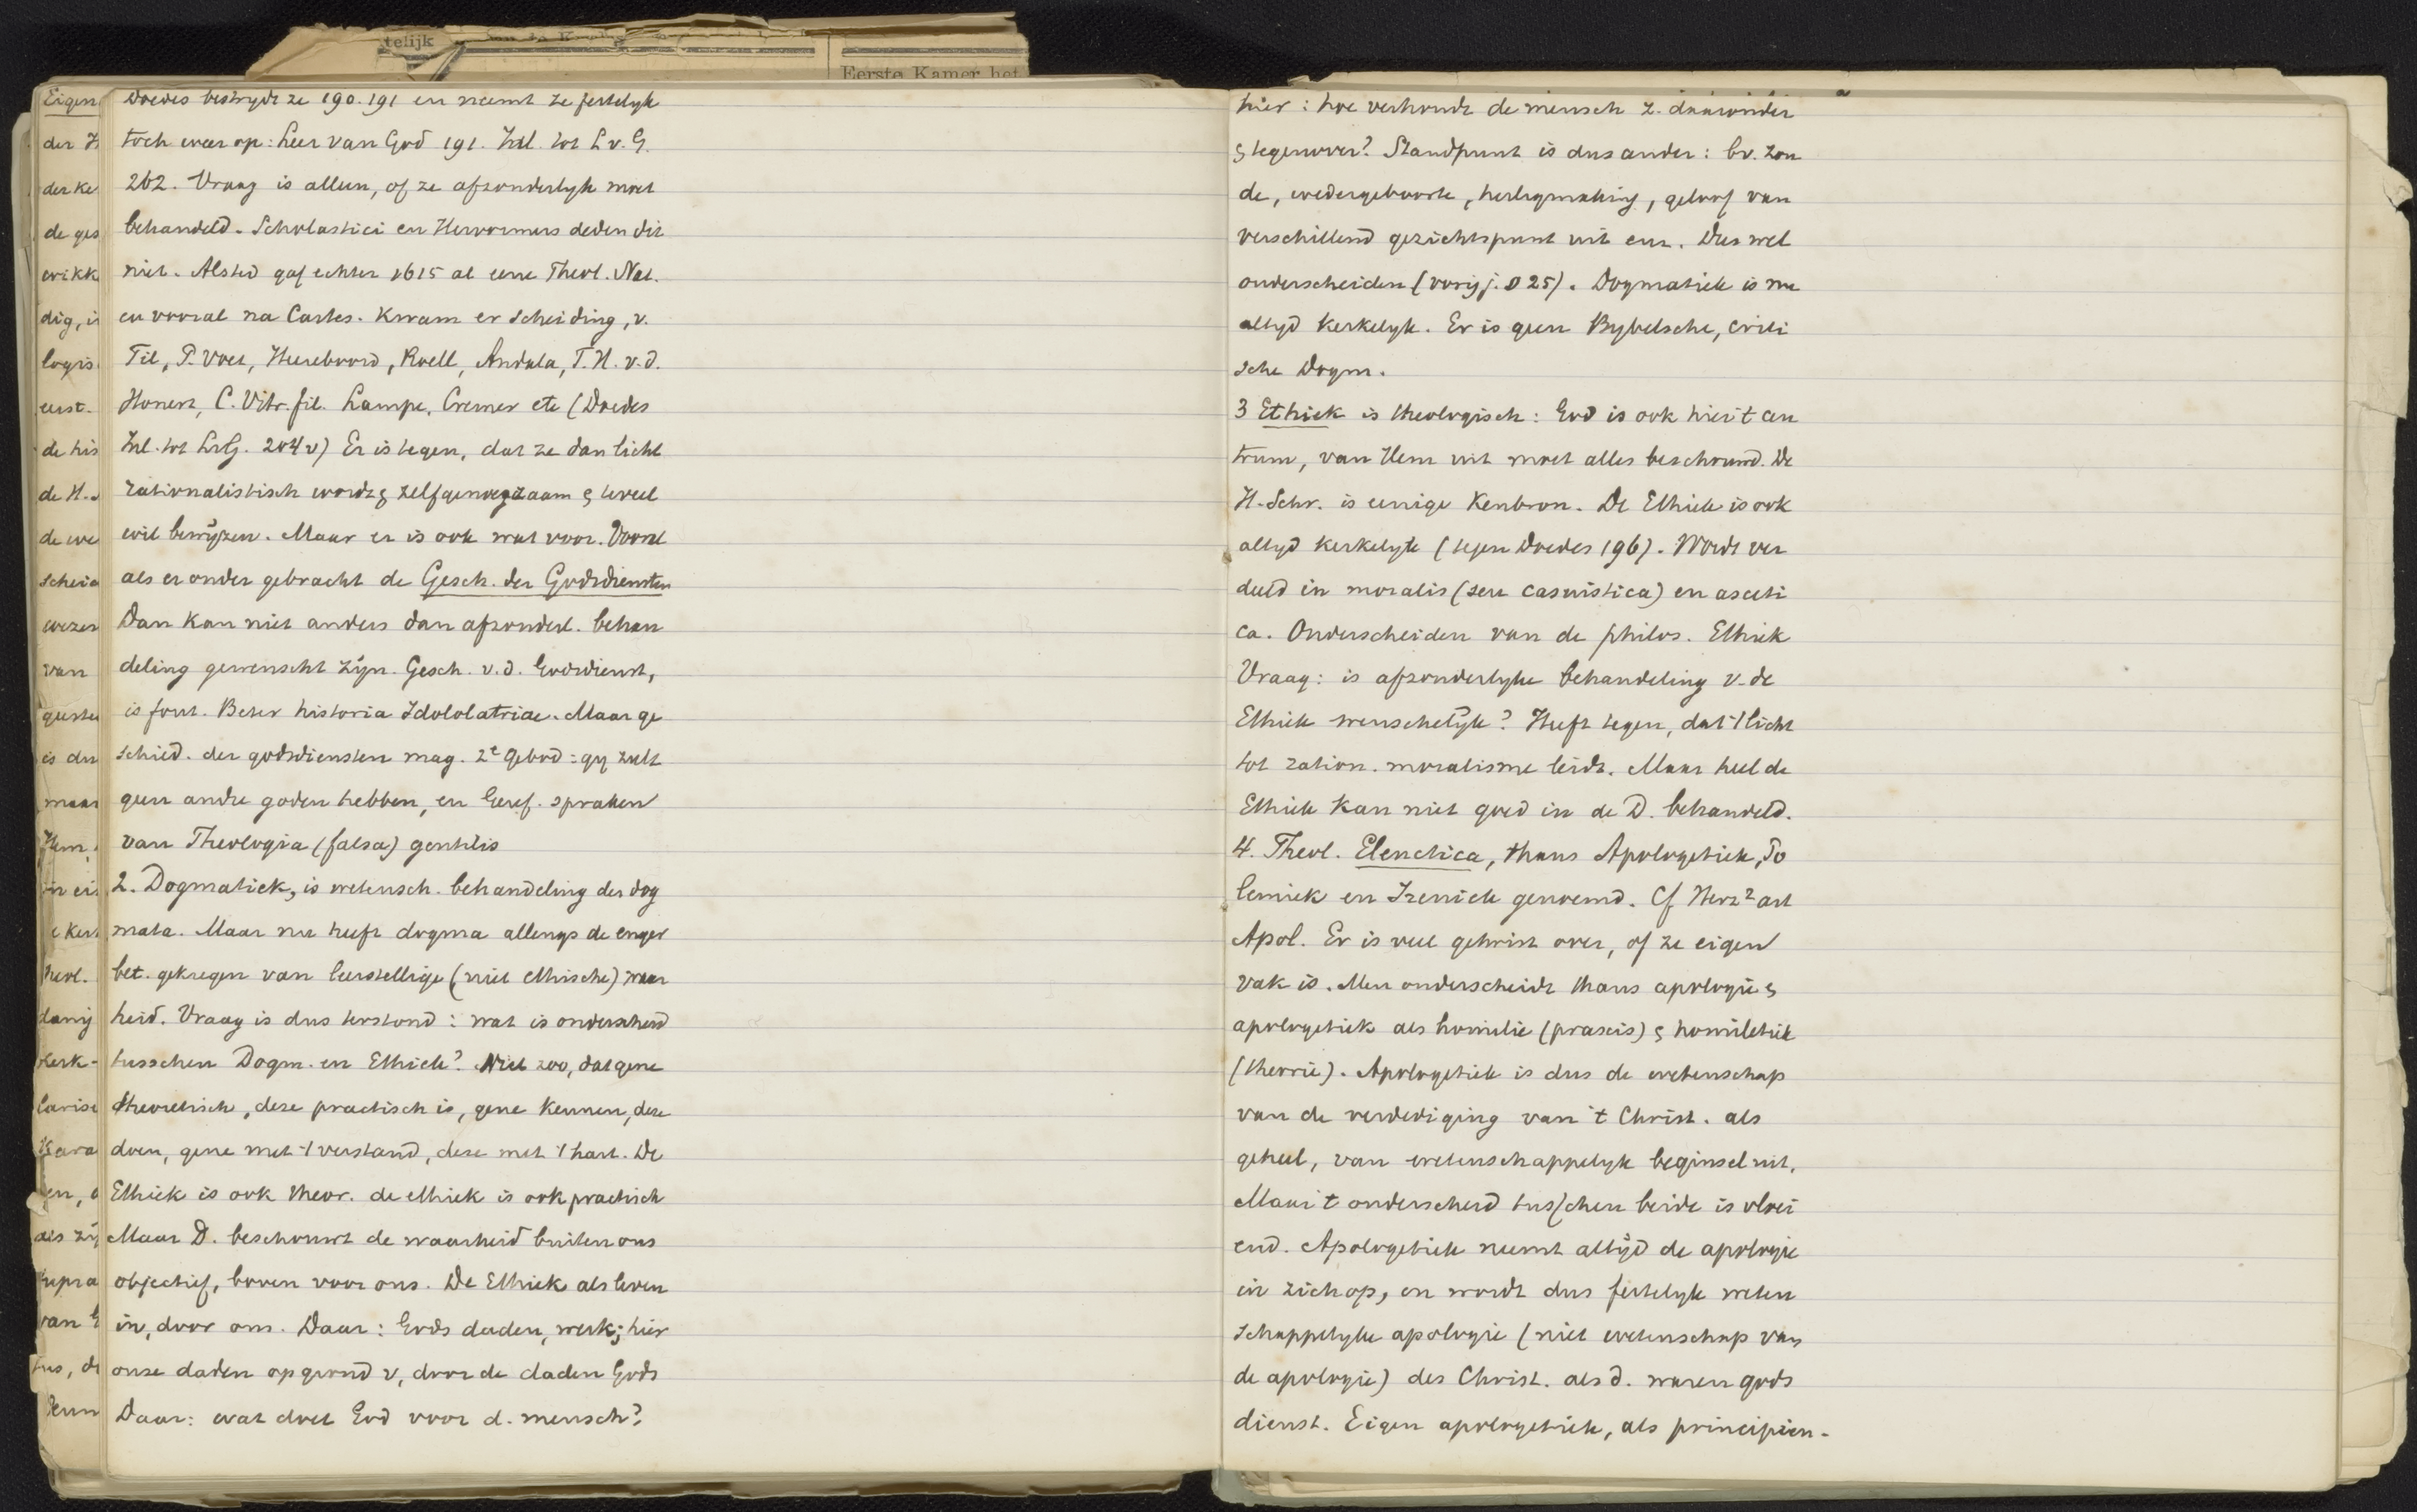 telijk
Eerste Kamer het
Eigen
der H
der Ke
de ges
wikk
dig, i
logis
eerst.
de his
de H.
de we
scheid
wezen
van
is du
maar
Hem,
in ei
e Ker
Theol.
Kerk-
en, o
als zij
supra
van G
tus, de
Doedes bestrijdt ze 190. 191 en neemt ze feitelijk
toch weer op: Leer van God 191. Inl. tot L. v. G.
202. Vraag is alleen, of ze afzonderlyk moet
behandeld. Scholastici en Hervormers deden dit
niet. Alsted gaf echter 1615 al eene Theol. Nat.
en vooral na Cartes. kwam er scheiding, v.
Til, P. Voet, Heereboord, Roell, Andala, T. H. v. d.
Honert, C. Vitr. fil. Lampe, Cremer etc (Doedes
Inl. tot LvG. 204 v) Er is tegen, dat ze dan licht
rationalistisch wordt & zelfgenoegzaam & teveel
wil bewijzen. Maar er is ook wat voor. Vooral
als er onder gebracht de Gesch. der Godsdiensten
Dan kan niet anders dan afzonderl. behan
deling gewenscht zijn. Gesch. v. d. Godsdienst,
is fout. Beter historia Idololatriae. Maar ge
schied. der godsdiensten mag. 2e Gebod: gy zult
geen andre goden hebben, en Geref. spraken
van Theologia (falsa) gentilis
2. Dogmatiek, is wetensch. behandeling der dog
mata. Maar nu heeft dogma allengs de enger
bet. gekregen van leerstellige (niet ethische) waar
heid. Vraag is dus terstond: wat is onderscheid
tusschen Dogm. en Ethiek? Niet zoo, dat gene
theoretisch, deze practisch is, gene kennen, deze
doen, gene met 't verstand, deze met 't hart. De
Ethiek is ook theor. de ethiek is ook practisch
Maar D. beschouwt de waarheid buiten ons
objectief, boven voor ons. De Ethiek als leven
in, door ons. Daar: Gods daden, werk; hier
onze daden op grond v, door de daden Gods
Daar: wat doet God voor d. mensch?
hier: hoe verhoudt de mensch z. daaronder
& tegenover? Standpunt is dus ander: bv. zon
de, wedergeboorte, heiligmaking, geloof van
verschillend gezichtspunt uit enz. Dus wel
onderscheiden (vorig j. D 25). Dogmatiek is nu
altyd Kerkelyk. Er is geen Bybelsche, criti
sche Dogm.
3 Ethiek is theologisch: God is ook hier 't cen
trum, van Hem uit moet alles beschouwd. De
H. Schr. is eenige Kenbron. De Ethiek is ook
altyd kerkelyk (tegen Doedes 196). Wordt ver
deeld in moralis (seu casuistica) en asceti
ca. Onderscheiden van de philos. Ethiek
Vraag: is afzonderlyke behandeling v. de
Ethiek wenschelijk? Heeft tegen, dat 't licht
tot ration. moralisme leidt. Maar heel de
Ethiek kan niet goed in de D. behandeld.
4. Theol. Elenctica, thans Apologetiek, Po
lemiek en Irenick genoemd. Cf Herz² art
Apol. Er is veel getwist over, of ze eigen
vak is. Men onderscheidt thans apologie &
apologetiek als homilie (praxis) & homiletiek
(theorie). Apologetiek is dus de wetenschap
van de verdediging van 't Christ. als
geheel, van wetenschappelyk beginsel uit.
Maar 't onderscheid tusschen beide is vloei
end. Apologetiek neemt altijd de apologie
in zich op, en wordt dus feitelyk weten
schappelyke apologie (niet wetenschap van
de apologie) des Christ. als d. waren gods
dienst. Eigen apologetiek, als principien-